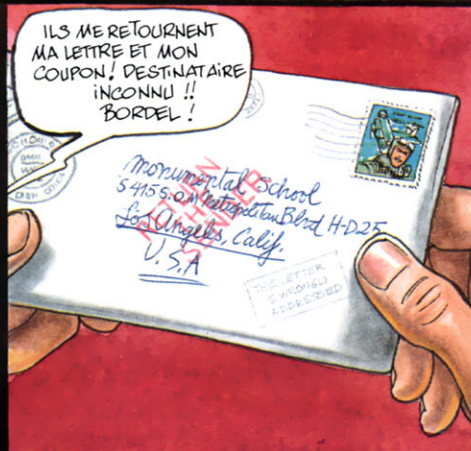 ILS ME RETOURNENT
MA LETTRE ET MON
COUPON! DESTINATAIRE
INCONNU !!
BORDEL !
Monumental School
5415 S.O.M Metropolitan Blvd H-D25
Los Angeles, Calif.
U.S.A
RETURN
THIS
SENDER
THE LETTER
IS WRONGLY
ADDRESSED